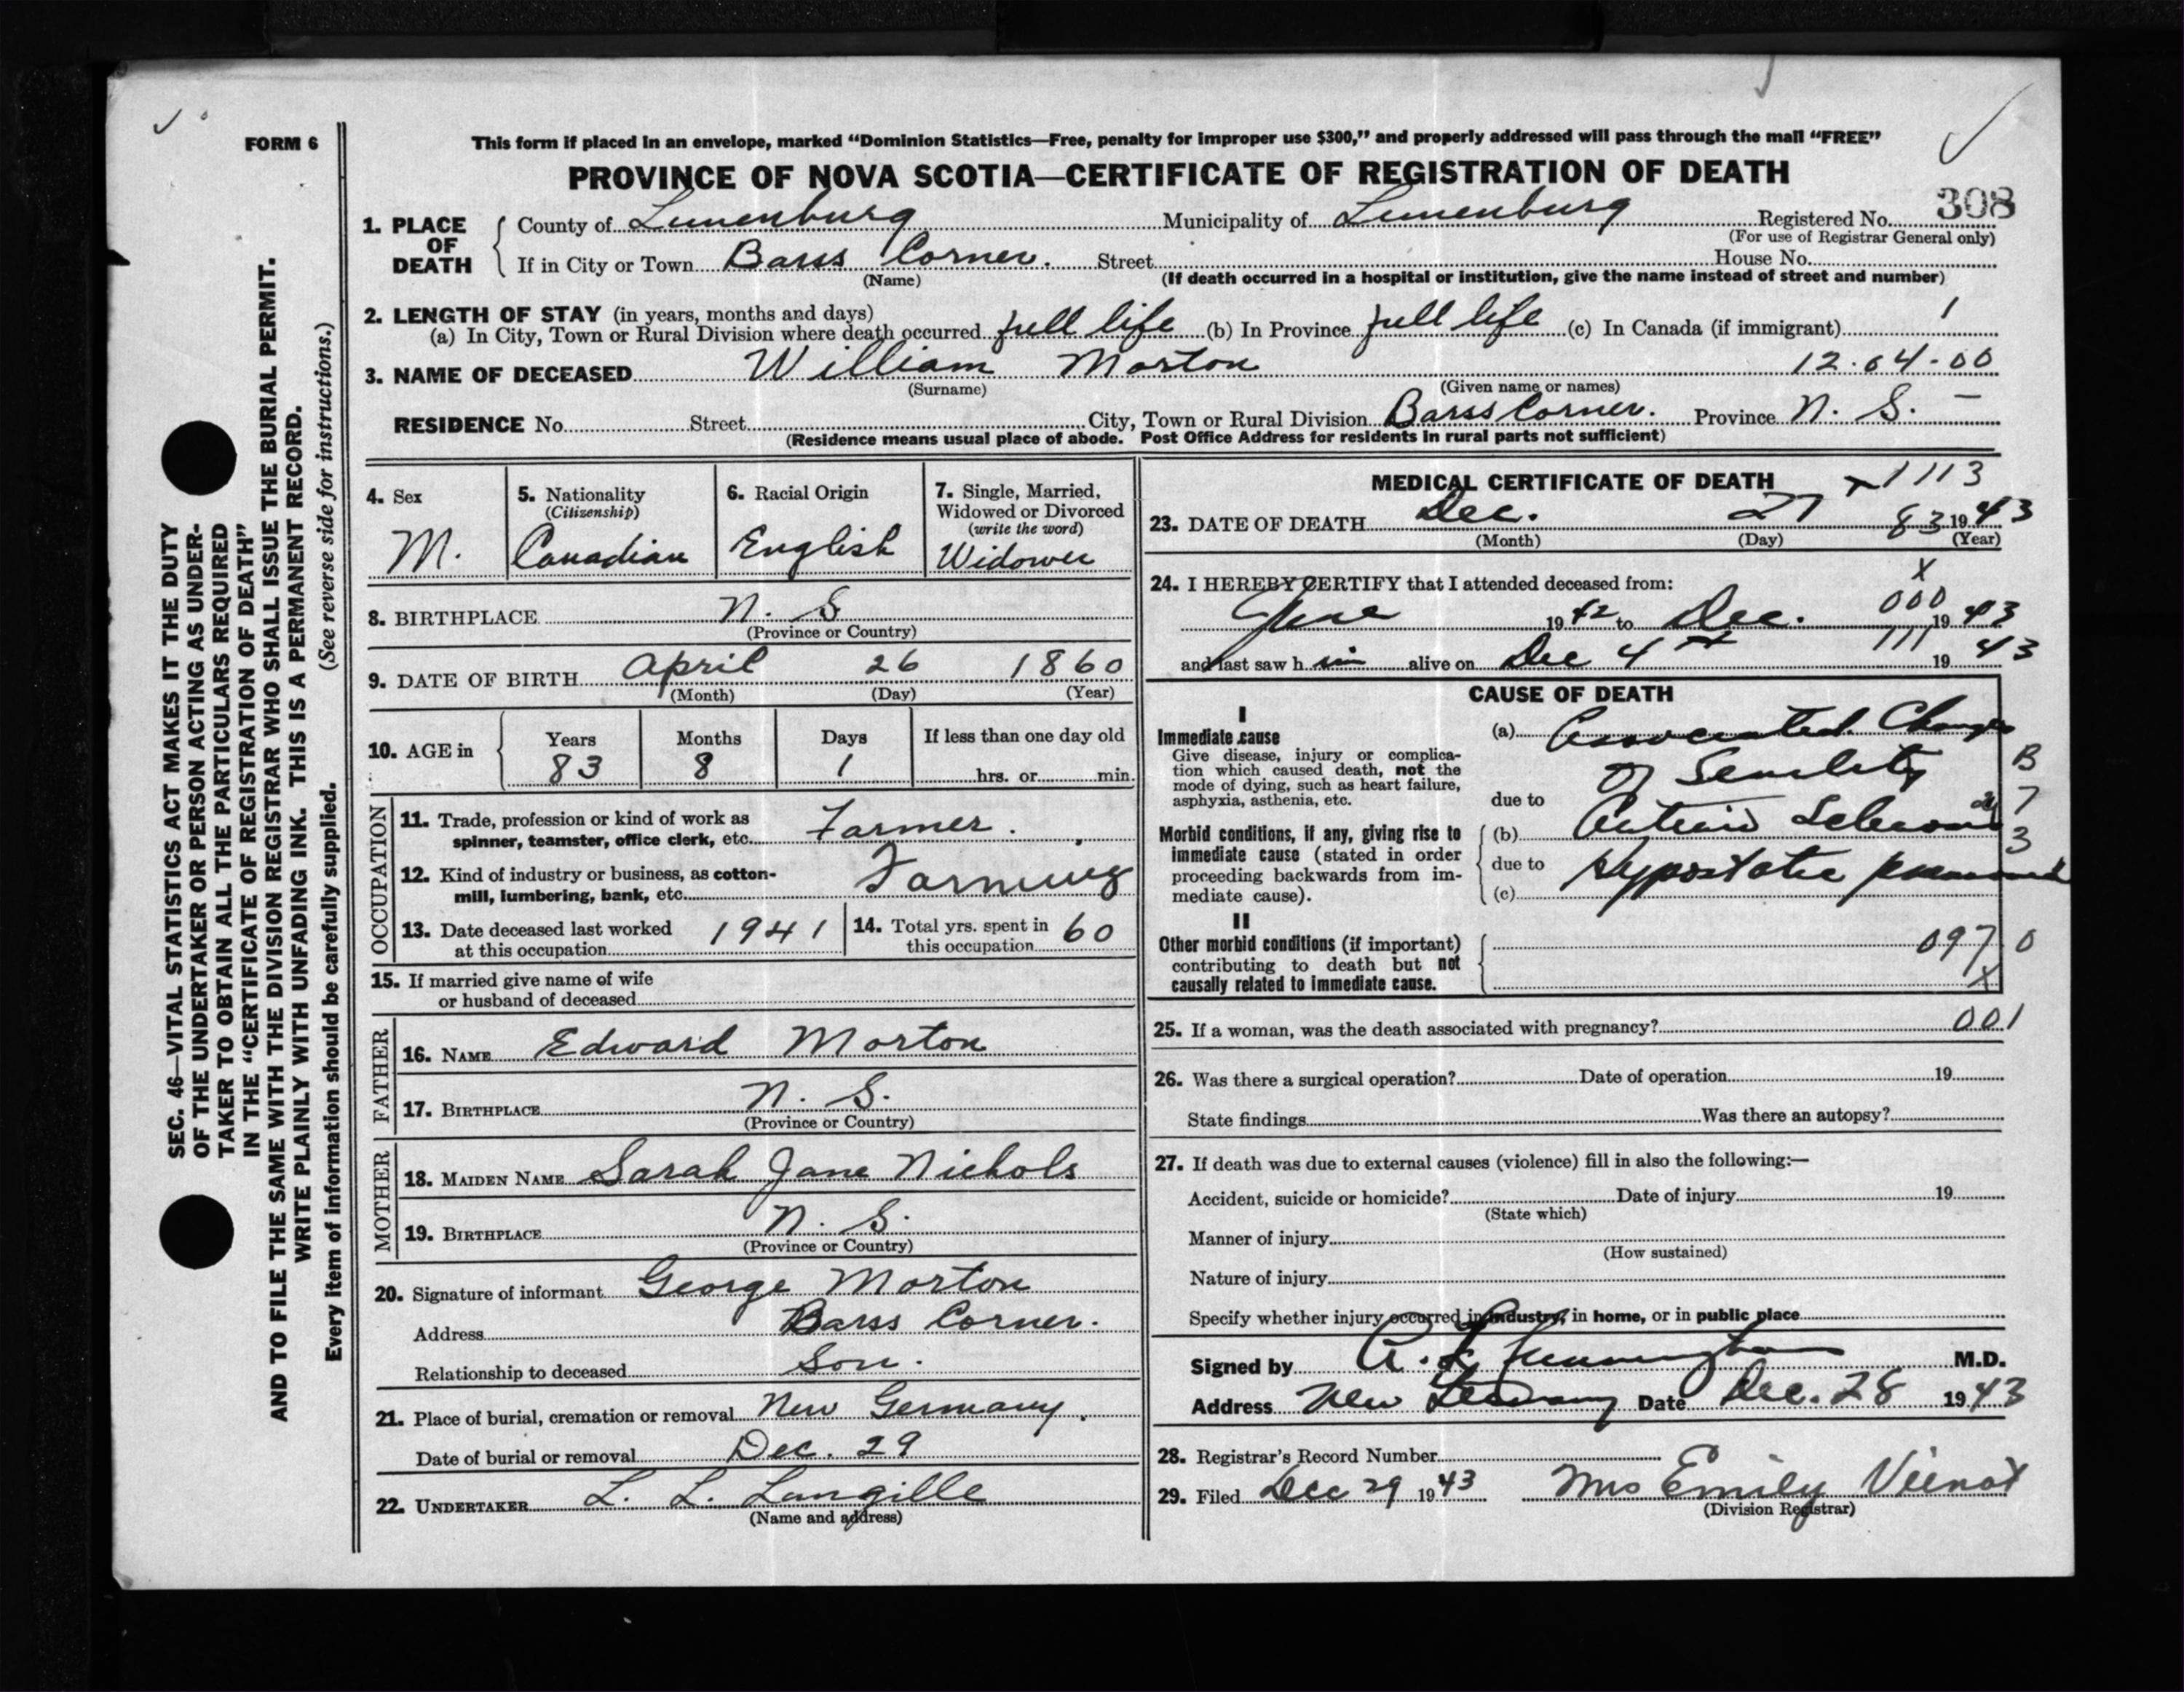 FORM 6
This form if placed in an envelope, marked “Dominion Statistics—Free, penalty for improper use $300,” and properly addressed will pass through the mail “FREE”
PROVINCE OF NOVA SCOTIA—CERTIFICATE OF REGISTRATION OF DEATH
308
1. PLACE OF DEATH { County of Lunenburg Municipality of Lunenburg Registered No.
(For use of Registrar General only)
If in City or Town Barss Corner. Street House No.
(Name) (If death occurred in a hospital or institution, give the name instead of street and number)
2. LENGTH OF STAY (in years, months and days)
(a) In City, Town or Rural Division where death occurred full life (b) In Province full life (c) In Canada (if immigrant) 1
3. NAME OF DECEASED William Morton 12.04-00
(Surname) (Given name or names)
RESIDENCE No. Street City, Town or Rural Division Barss Corner. Province N. S. –
(Residence means usual place of abode. Post Office Address for residents in rural parts not sufficient)
4. Sex
M.
5. Nationality
(Citizenship)
Canadian
6. Racial Origin
English
7. Single, Married,
Widowed or Divorced
(write the word)
Widower
8. BIRTHPLACE N. S
(Province or Country)
9. DATE OF BIRTH April 26 1860
(Month) (Day) (Year)
10. AGE in { Years Months Days If less than one day old
83 8 1 hrs. or min.
OCCUPATION
11. Trade, profession or kind of work as
spinner, teamster, office clerk, etc. Farmer.
12. Kind of industry or business, as cotton-
mill, lumbering, bank, etc. Farming
13. Date deceased last worked
at this occupation 1941
14. Total yrs. spent in
this occupation 60
15. If married give name of wife
or husband of deceased
FATHER
16. NAME Edward Morton
17. BIRTHPLACE N. S.
(Province or Country)
MOTHER
18. MAIDEN NAME Sarah Jane Nichols
19. BIRTHPLACE N. S.
(Province or Country)
20. Signature of informant George Morton
Address Barss Corner.
Relationship to deceased Son.
21. Place of burial, cremation or removal New Germany.
Date of burial or removal Dec. 29
22. UNDERTAKER L. L. Langille
(Name and address)
MEDICAL CERTIFICATE OF DEATH 1113
23. DATE OF DEATH Dec. 27 83 1943
(Month) (Day) (Year)
X
24. I HEREBY CERTIFY that I attended deceased from:
000
June 1942 to Dec. 1943
111
and last saw him alive on Dec 4th 1943
CAUSE OF DEATH
I
Immediate cause
Give disease, injury or complica-
tion which caused death, not the
mode of dying, such as heart failure,
asphyxia, asthenia, etc.
(a) Associated Changes
of Senility
due to
Morbid conditions, if any, giving rise to
immediate cause (stated in order
proceeding backwards from im-
mediate cause).
(b)
due to Hypostatic
(c)
B
7
3
II
Other morbid conditions (if important)
contributing to death but not
causally related to immediate cause.
097 0
X
25. If a woman, was the death associated with pregnancy? 001
26. Was there a surgical operation? Date of operation 19
State findings Was there an autopsy?
27. If death was due to external causes (violence) fill in also the following:—
Accident, suicide or homicide? Date of injury 19
(State which)
Manner of injury
(How sustained)
Nature of injury
Specify whether injury occurred in industry, in home, or in public place
Signed by M.D.
Address New Germany Date Dec. 28 1943
28. Registrar’s Record Number
29. Filed Dec 29 1943 Mrs Emily Veinot
(Division Registrar)
SEC. 46—VITAL STATISTICS ACT MAKES IT THE DUTY
OF THE UNDERTAKER OR PERSON ACTING AS UNDER-
TAKER TO OBTAIN ALL THE PARTICULARS REQUIRED
IN THE “CERTIFICATE OF REGISTRATION OF DEATH”
AND TO FILE THE SAME WITH THE DIVISION REGISTRAR WHO SHALL ISSUE THE BURIAL PERMIT.
WRITE PLAINLY WITH UNFADING INK. THIS IS A PERMANENT RECORD.
Every item of information should be carefully supplied. (See reverse side for instructions.)